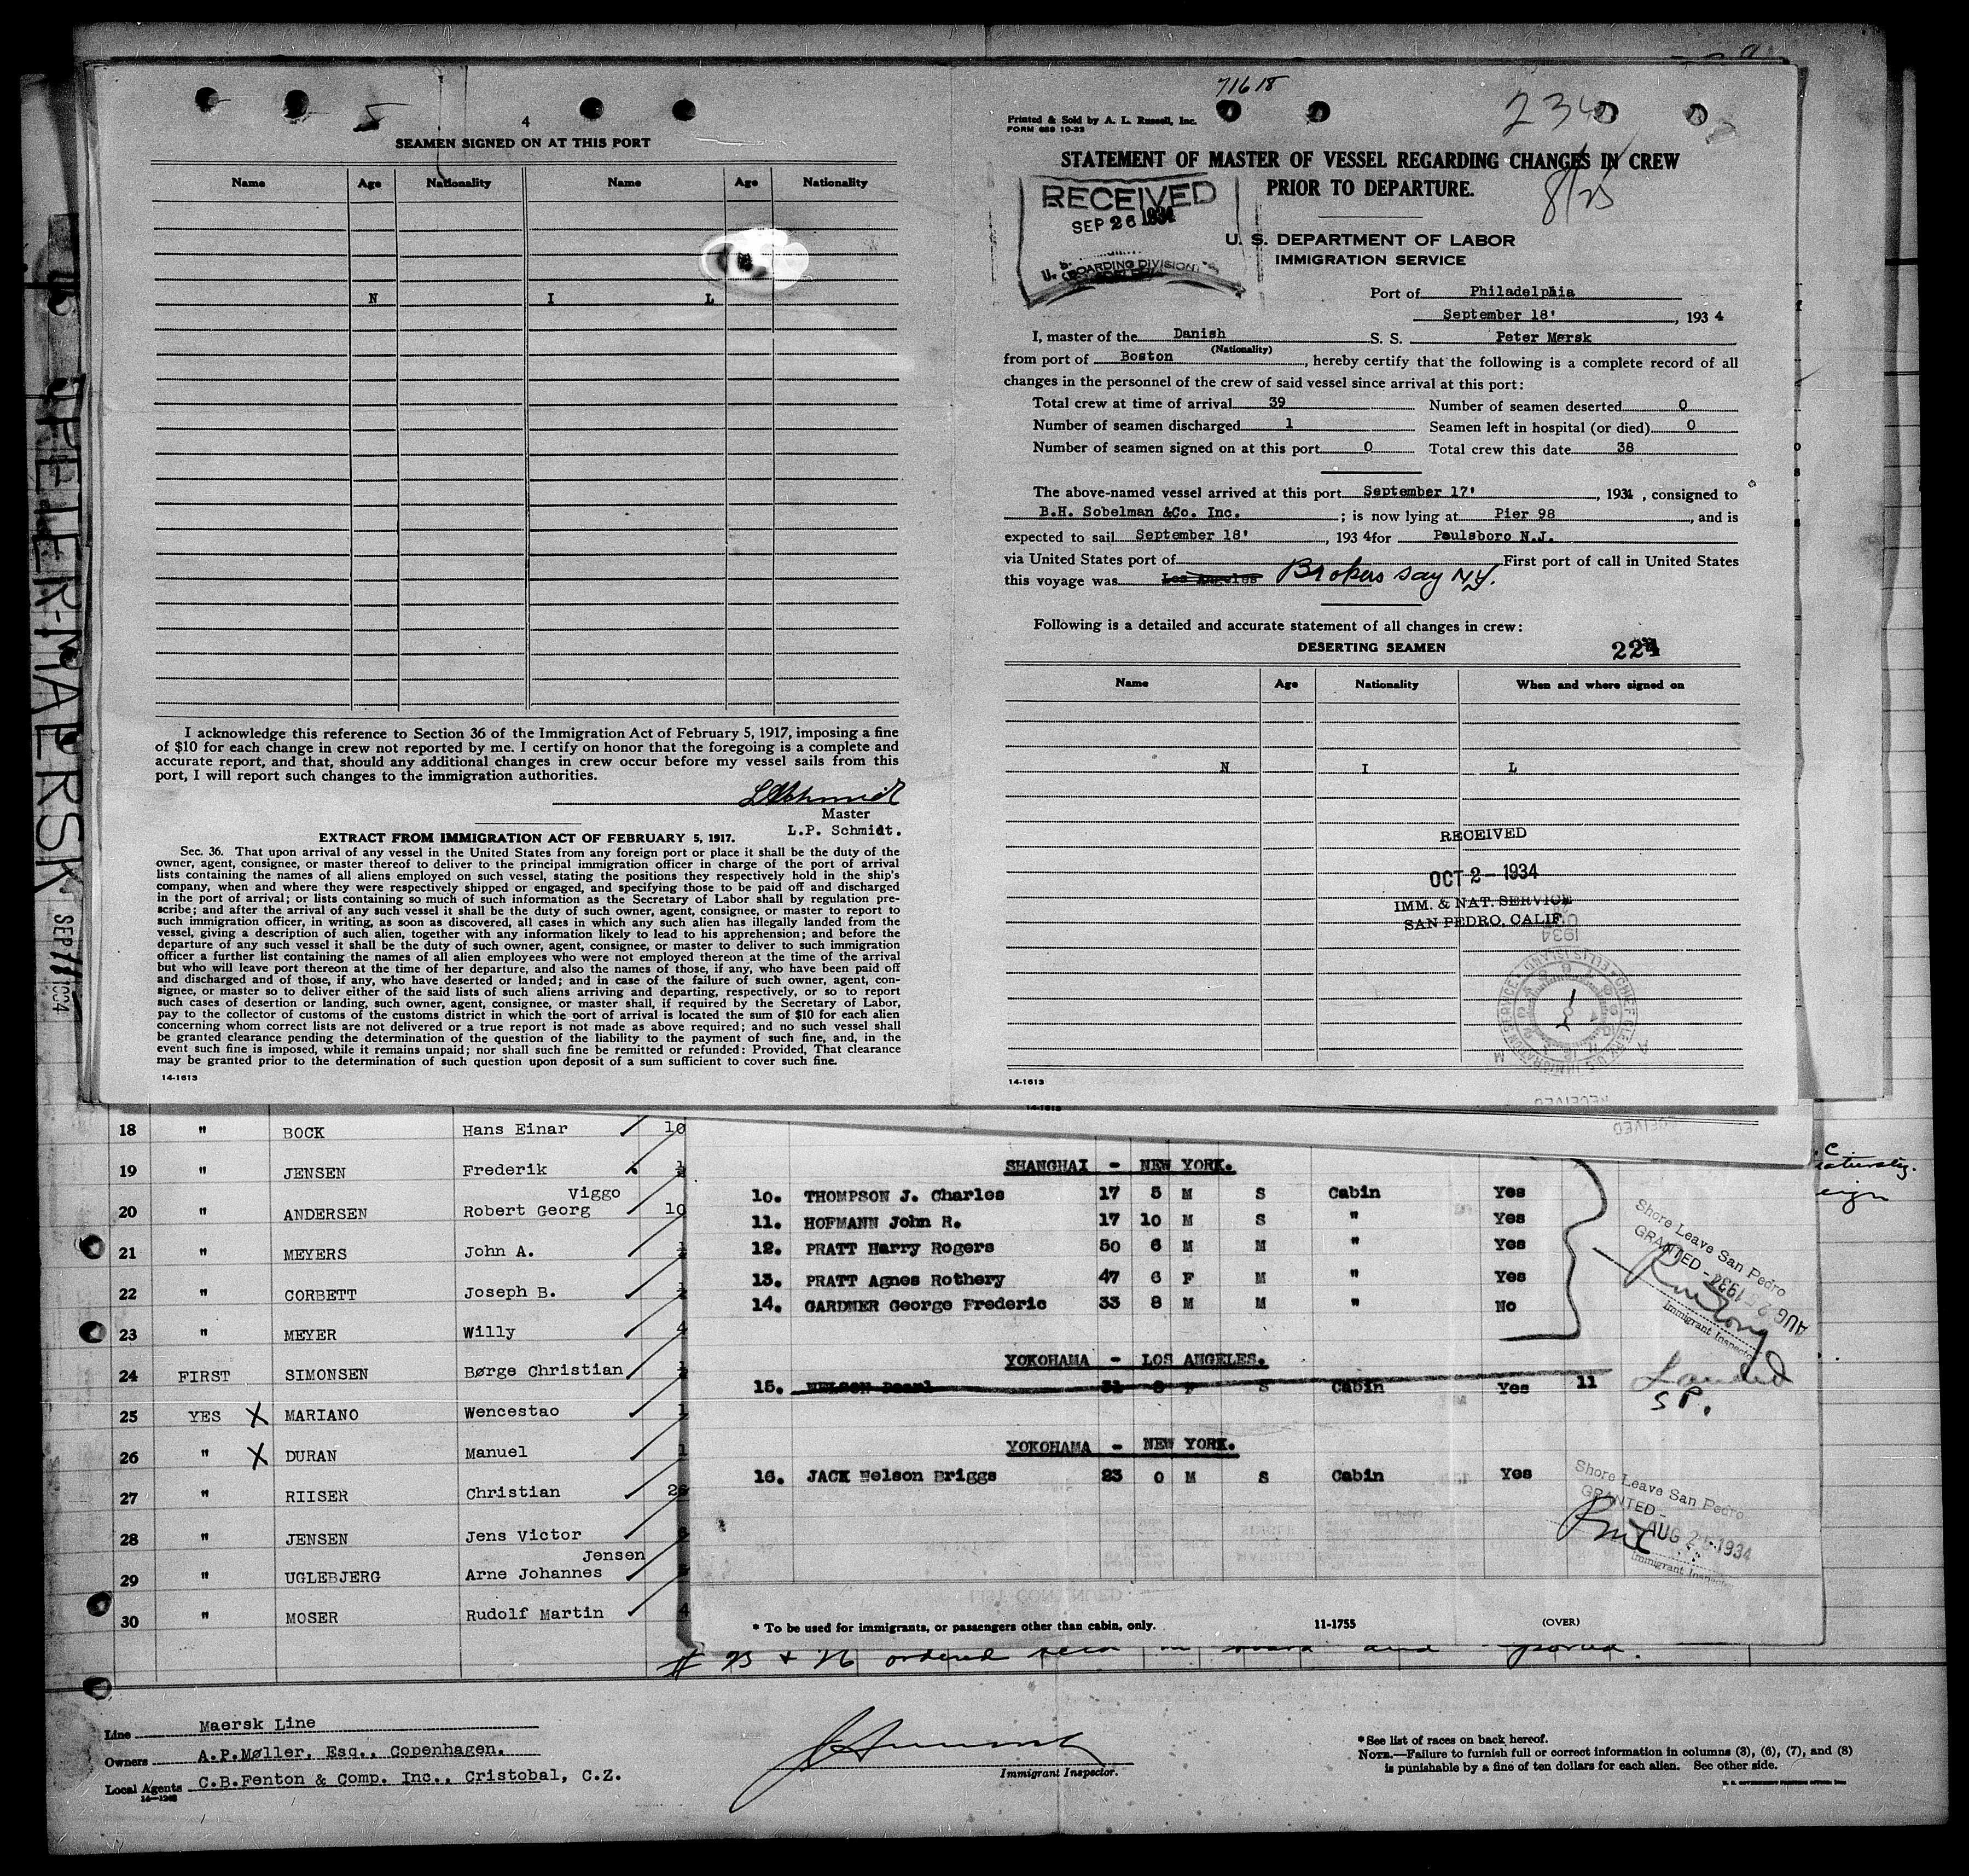 5
4
SEAMEN SIGNED ON AT THIS PORT
Name Age Nationality Name Age Nationality
N I L
I acknowledge this reference to Section 36 of the Immigration Act of February 5, 1917, imposing a fine
of $10 for each change in crew not reported by me. I certify on honor that the foregoing is a complete and
accurate report, and that, should any additional changes in crew occur before my vessel sails from this
port, I will report such changes to the immigration authorities.
Master
L.P. Schmidt.
EXTRACT FROM IMMIGRATION ACT OF FEBRUARY 5, 1917.
Sec. 36. That upon arrival of any vessel in the United States from any foreign port or place it shall be the duty of the
owner, agent, consignee, or master thereof to deliver to the principal immigration officer in charge of the port of arrival
lists containing the names of all aliens employed on such vessel, stating the positions they respectively hold in the ship's
company, when and where they were respectively shipped or engaged, and specifying those to be paid off and discharged
in the port of arrival; or lists containing so much of such information as the Secretary of Labor shall by regulation pre-
scribe; and after the arrival of any such vessel it shall be the duty of such owner, agent, consignee, or master to report to
such immigration officer, in writing, as soon as discovered, all cases in which any such alien has illegally landed from the
vessel, giving a description of such alien, together with any information likely to lead to his apprehension; and before the
departure of any such vessel it shall be the duty of such owner, agent, consignee, or master to deliver to such immigration
officer a further list containing the names of all alien employees who were not employed thereon at the time of the arrival
but who will leave port thereon at the time of her departure, and also the names of those, if any, who have been paid off
and discharged and of those, if any, who have deserted or landed; and in case of the failure of such owner, agent, con-
signee, or master so to deliver either of the said lists of such aliens arriving and departing, respectively, or so to report
such cases of desertion or landing, such owner, agent, consignee, or master shall, if required by the Secretary of Labor,
pay to the collector of customs of the customs district in which the port of arrival is located the sum of $10 for each alien
concerning whom correct lists are not delivered or a true report is not made as above required; and no such vessel shall
be granted clearance pending the determination of the question of the liability to the payment of such fine, and, in the
event such fine is imposed, while it remains unpaid; nor shall such fine be remitted or refunded: Provided, That clearance
may be granted prior to the determination of such question upon deposit of a sum sufficient to cover such fine.
14-1613
PETER-MAERSK SEP 1934
71618
Printed & Sold by A. L. Russell, Inc.
FORM 689 10-33
STATEMENT OF MASTER OF VESSEL REGARDING CHANGES IN CREW
PRIOR TO DEPARTURE.
8/25
RECEIVED
SEP 26 1934
BOARDING DIVISION
U. S. DEPARTMENT OF LABOR
IMMIGRATION SERVICE
Port of Philadelphia
September 18' , 193 4
I, master of the Danish S. S. Peter Mersk
(Nationality)
from port of Boston , hereby certify that the following is a complete record of all
changes in the personnel of the crew of said vessel since arrival at this port:
Total crew at time of arrival 39 Number of seamen deserted 0
Number of seamen discharged 1 Seamen left in hospital (or died) 0
Number of seamen signed on at this port 0 Total crew this date 38
The above-named vessel arrived at this port September 17' , 1934 , consigned to
B.H. Sobelman &Co. Inc. ; is now lying at Pier 98 , and is
expected to sail September 18' , 193 4 for Paulsboro N.J.
via United States port of First port of call in United States
this voyage was Los Angeles Brokers say N.Y.
Following is a detailed and accurate statement of all changes in crew:
DESERTING SEAMEN 224
Name Age Nationality When and where signed on
N I L
RECEIVED
OCT 2 - 1934
IMM. & NAT. SERVICE
SAN PEDRO, CALIF.
14-1613
18 " BOCK Hans Einar 10
19 " JENSEN Frederik
20 " ANDERSEN Robert Georg Viggo 10
21 " MEYERS John A.
22 " CORBETT Joseph B.
23 " MEYER Willy 4
24 FIRST SIMONSEN Børge Christian
25 YES X MARIANO Wencestao 1
26 " X DURAN Manuel 1
27 " RIISER Christian
28 " JENSEN Jens Victor
29 " UGLEBJERG Arne Johannes Jensen
30 " MOSER Rudolf Martin 4
SHANGHAI - NEW YORK.
10. THOMPSON J. Charles 17 5 M S Cabin Yes
11. HOFMANN John R. 17 10 M S " Yes
12. PRATT Harry Rogers 50 6 M M " Yes
13. PRATT Agnes Rothery 47 6 F M " Yes
14. GARDNER George Frederic 33 8 M M " No
Shore Leave San Pedro
GRANTED - AUG 25 1934
Immigrant Inspector
YOKOHAMA - LOS ANGELES.
15. NELSON Pearl 31 9 F S Cabin Yes 11
Landed
S P.
YOKOHAMA - NEW YORK.
16. JACK Nelson Briggs 23 0 M S Cabin Yes
Shore Leave San Pedro
GRANTED -
AUG 25 1934
Immigrant Inspector
* To be used for immigrants, or passengers other than cabin, only. 11-1755 (OVER)
# 25 & 26 ordered held on board and
Line Maersk Line
Owners A.P.Møller, Esq., Copenhagen.
Local Agents C.B.Fenton & Comp. Inc., Cristobal, C.Z.
Immigrant Inspector.
*See list of races on back hereof.
NOTE.—Failure to furnish full or correct information in columns (3), (6), (7), and (8)
is punishable by a fine of ten dollars for each alien. See other side.